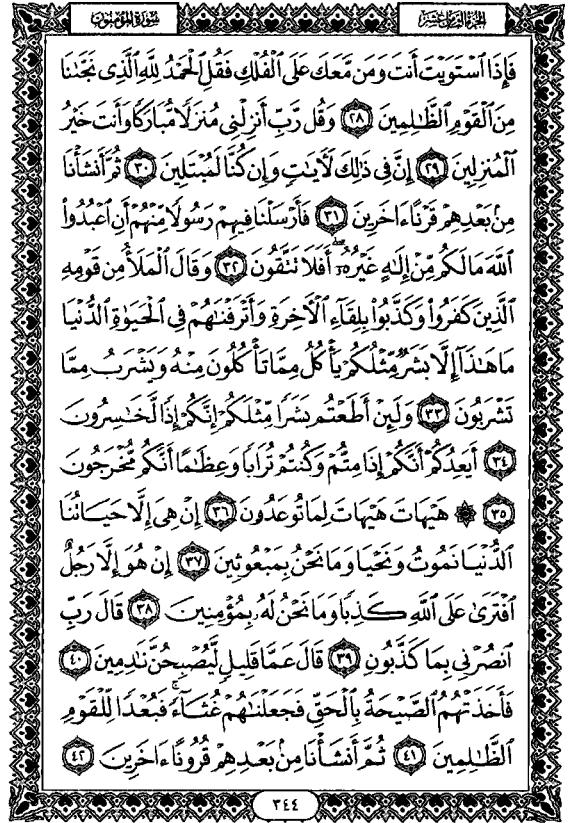 سورة المؤمنون الجزء الثامن عشر
فَإِذَا ٱسْتَوَيْتَ أَنتَ وَمَن مَّعَكَ عَلَى ٱلْفُلْكِ فَقُلِ ٱلْحَمْدُ لِلَّهِ ٱلَّذِى نَجَّىٰنَا
مِنَ ٱلْقَوْمِ ٱلظَّٰلِمِينَ ٢٨ وَقُل رَّبِّ أَنزِلْنِى مُنزَلًا مُّبَارَكًا وَأَنتَ خَيْرُ
ٱلْمُنزِلِينَ ٢٩ إِنَّ فِى ذَٰلِكَ لَءَايَٰتٍ وَإِن كُنَّا لَمُبْتَلِينَ ٣٠ ثُمَّ أَنشَأْنَا
مِنۢ بَعْدِهِمْ قَرْنًا ءَاخَرِينَ ٣١ فَأَرْسَلْنَا فِيهِمْ رَسُولًا مِّنْهُمْ أَنِ ٱعْبُدُوا۟
ٱللَّهَ مَا لَكُم مِّنْ إِلَٰهٍ غَيْرُهُۥٓ ۖ أَفَلَا تَتَّقُونَ ٣٢ وَقَالَ ٱلْمَلَأُ مِن قَوْمِهِ
ٱلَّذِينَ كَفَرُوا۟ وَكَذَّبُوا۟ بِلِقَآءِ ٱلْءَاخِرَةِ وَأَتْرَفْنَٰهُمْ فِى ٱلْحَيَوٰةِ ٱلدُّنْيَا
مَا هَٰذَآ إِلَّا بَشَرٌ مِّثْلُكُمْ يَأْكُلُ مِمَّا تَأْكُلُونَ مِنْهُ وَيَشْرَبُ مِمَّا
تَشْرَبُونَ ٣٣ وَلَئِنْ أَطَعْتُم بَشَرًا مِّثْلَكُمْ إِنَّكُمْ إِذًا لَّخَٰسِرُونَ
٣٤ أَيَعِدُكُمْ أَنَّكُمْ إِذَا مِتُّمْ وَكُنتُمْ تُرَابًا وَعِظَٰمًا أَنَّكُم مُّخْرَجُونَ
٣٥ ۞ هَيْهَاتَ هَيْهَاتَ لِمَا تُوعَدُونَ ٣٦ إِنْ هِىَ إِلَّا حَيَاتُنَا
ٱلدُّنْيَا نَمُوتُ وَنَحْيَا وَمَا نَحْنُ بِمَبْعُوثِينَ ٣٧ إِنْ هُوَ إِلَّا رَجُلٌ
ٱفْتَرَىٰ عَلَى ٱللَّهِ كَذِبًا وَمَا نَحْنُ لَهُۥ بِمُؤْمِنِينَ ٣٨ قَالَ رَبِّ
ٱنصُرْنِى بِمَا كَذَّبُونِ ٣٩ قَالَ عَمَّا قَلِيلٍ لَّيُصْبِحُنَّ نَٰدِمِينَ ٤٠
فَأَخَذَتْهُمُ ٱلصَّيْحَةُ بِٱلْحَقِّ فَجَعَلْنَٰهُمْ غُثَآءً ۚ فَبُعْدًا لِّلْقَوْمِ
ٱلظَّٰلِمِينَ ٤١ ثُمَّ أَنشَأْنَا مِنۢ بَعْدِهِمْ قُرُونًا ءَاخَرِينَ ٤٢
٣٤٤